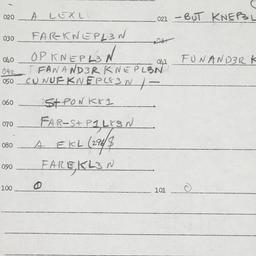 020 A LEXL 021 -BUT KNEP3L
030 FAR-KNEPL3N
040 OPKNEPL3N 041 FUNAND3R K
FANAND3R KNEPL3N
050 CUNUFKNEPLE3N
060 S+PONKK1
070 FAR-S+P1,LK3N
080 A EKL
090 FARE,KL3N
100 0 101 0